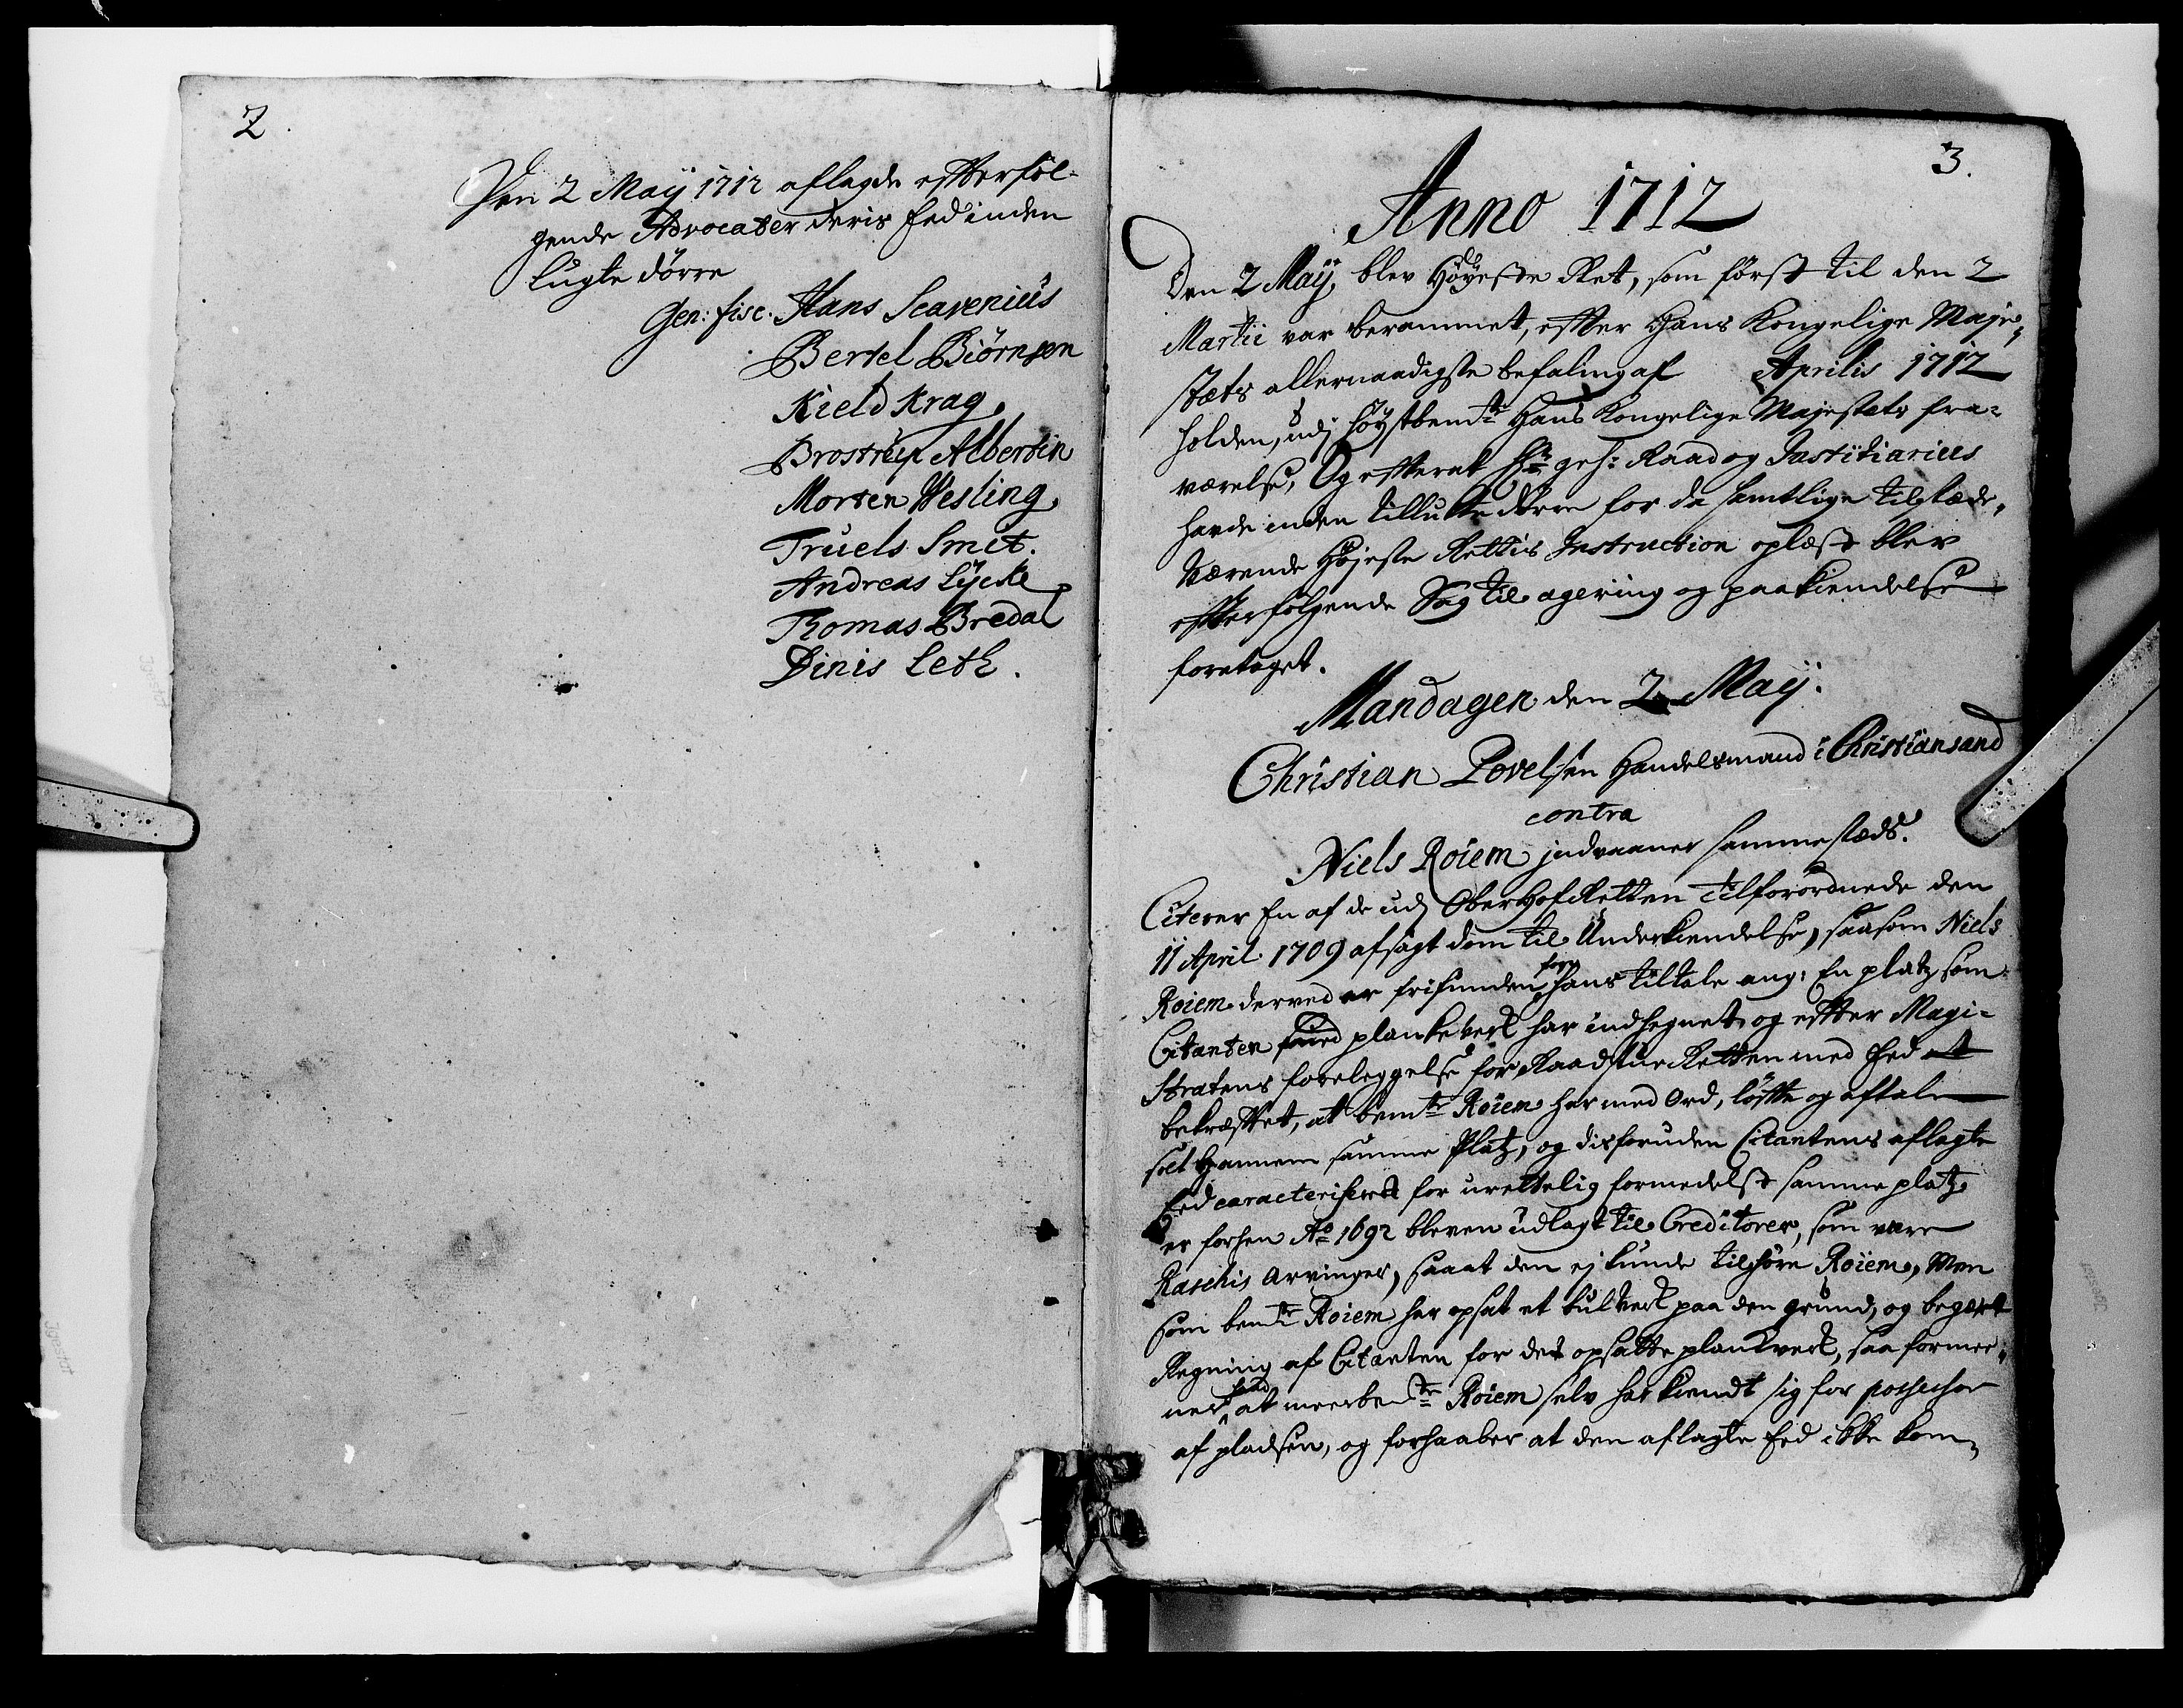 2.
Den 2 Maÿ 1712 aflagde effterføl-
gende Advocater deris Eed inden
lugte dörre
Gen: fisc. Hans Scavenius
Bertel Biørnsen
Kield Krag,
Brostrup Albertin
Morten Wesling,
Truels Smet.
Andreas Lÿcke
Thomas Bredal
Dinis Leth.
3.
Anno 1712
Den 2 Maÿ, blev Høÿeste Ret, som først til den 2
Martii var berammet, effter Hans Kongelige Maje-
stæts allernaadigste befaling af Aprilis 1712
holden, udj høÿstbemte Hans Kongelige Majestæts fra-
værelse, Og effterat Hr geh: Raad og Justitiarius
hafde inden tillukte dörre for de samtlige tilstæde-
værende Højeste Rettis Instruction oplæst blev
effterfølgende Sag til agering og paakiendelse
foretaget.
Mandagen den 2 Maÿ.
Christian Povelsen Handelsmand i Christiansand
contra
Niels Roiem jndvaaner sammestæds.
Citerer En af de udj OberHofRetten tilforordnede den
11 April 1709 afsagt dom til Underkiendelse, saasom Niels
Roiem derved er frifunden for hans tiltale ang: En platz som
Citanten med plankeverk har indhegnet, og effter Magi-
stratens foreleggelse for Raadstue Retten med Eed
bekræfftet, at bemte Roiem har med Ord, løffte og aftale
solt Hannem samme Platz, og disforuden Citantens aflagte
Eed caracteriseret for urettelig formedelst samme platz
er forhen Ao 1692 bleven udlagt til Creditorer, som vare
Raschis Arvinger, saa at den ej kunde tilhøre Roiem, Men
som bemte Roiem har opsat et bulverk paa den grund, og begært
Regning af Citanten for det opsatte plankverk, saa formee-
ner hand at meerbemte Roiem selv har kiendt sig for possessor
af pladsen, og forhaaber at den aflagte Eed ikke kom-